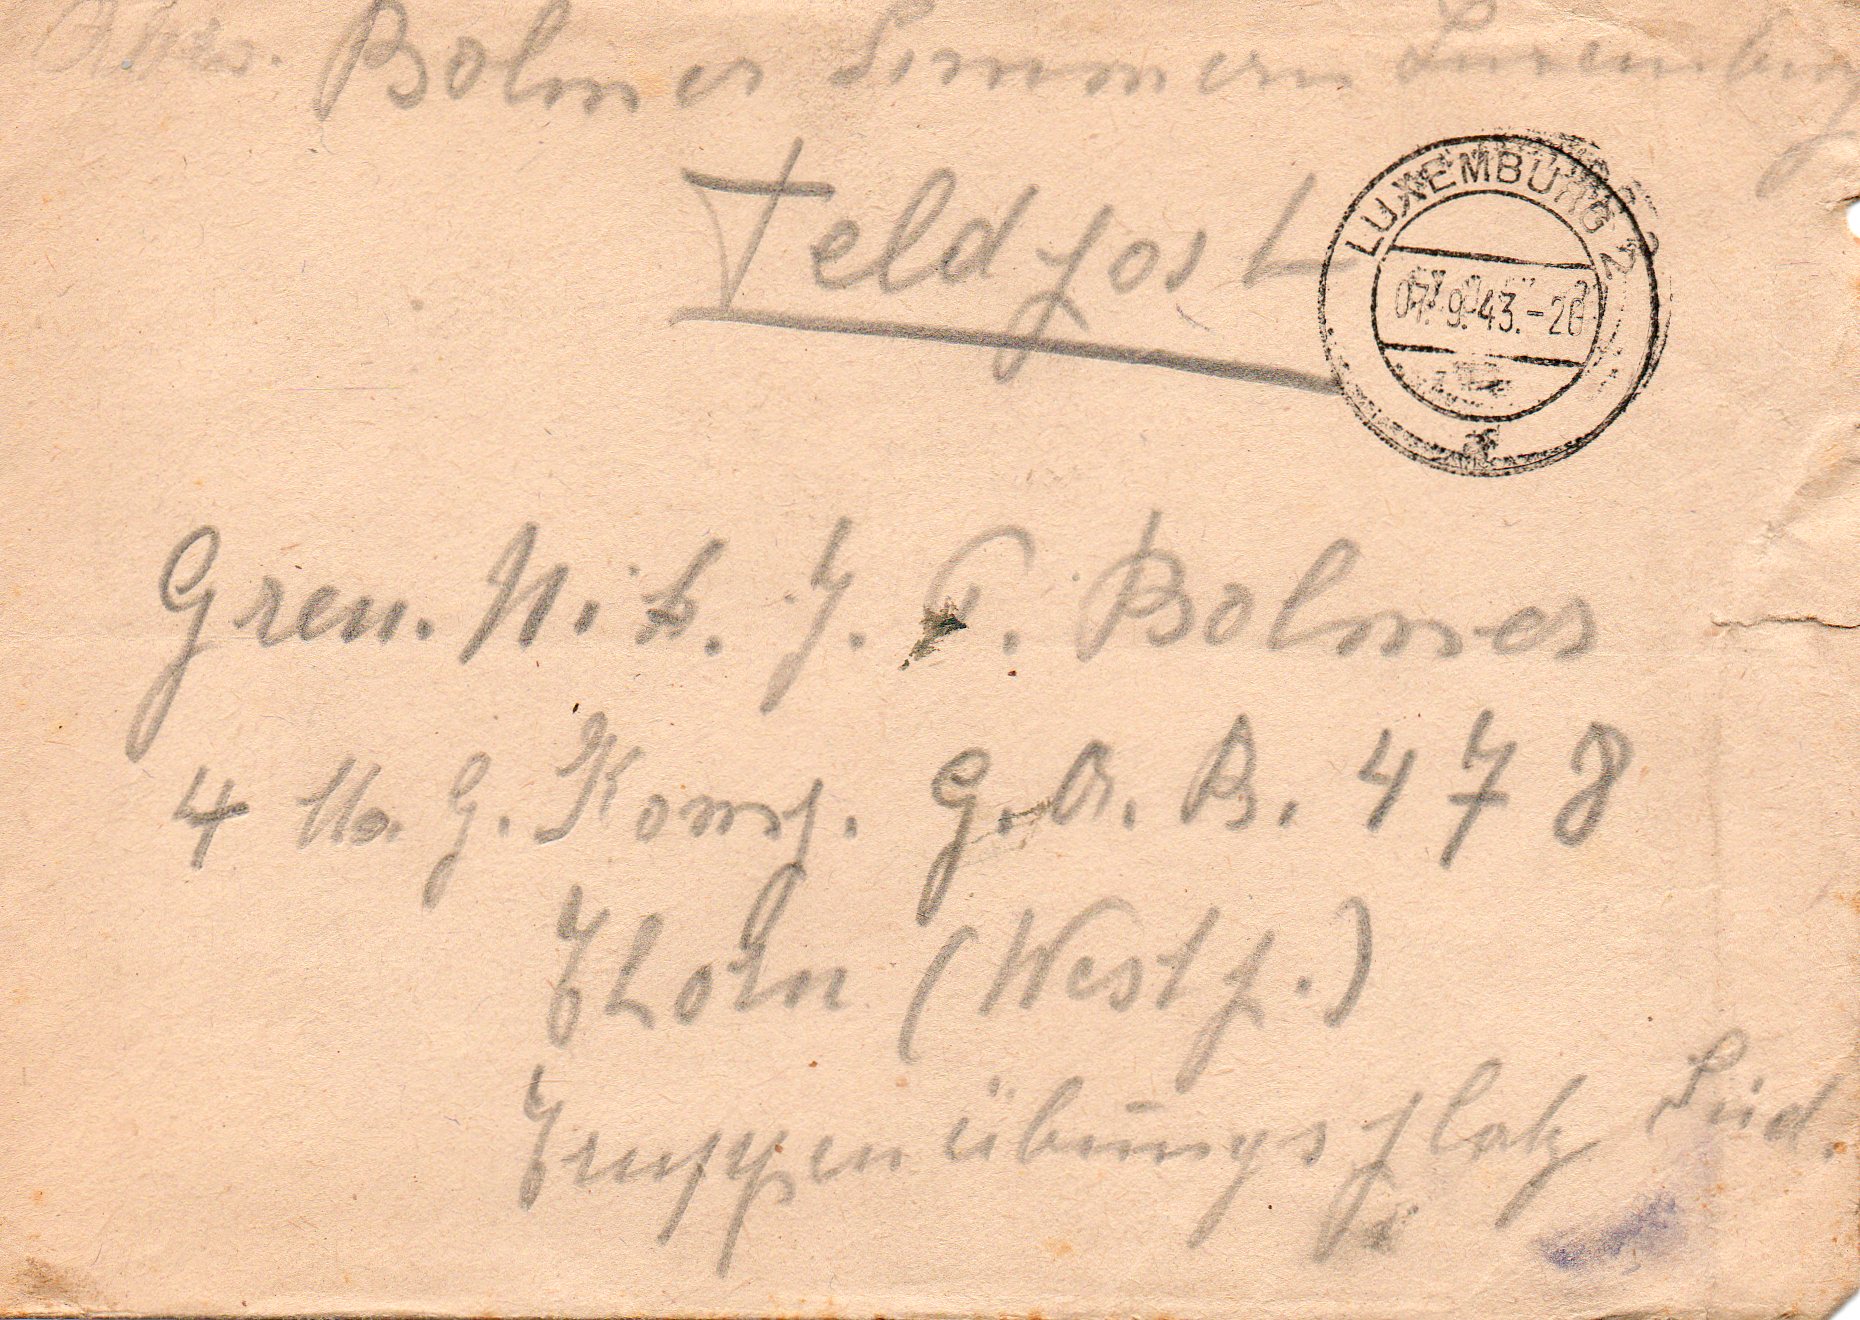 Abs. Bolmer Simmern Luxemburg
Feldpost
LUXEMBURG 2
07.9.43.-20
Gren. N. S. J. P. Bolmer
4 M. G. Komp. G. A. B. 478
Thorn (Westpr.)
Truppenübungsplatz Süd.